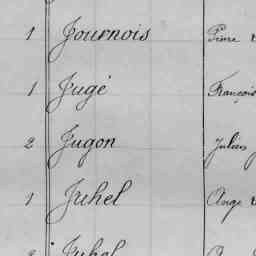 1 Journois Pierre
1 Jugé François
2 Jugon Julien
1 Juhel Ange
Juhel